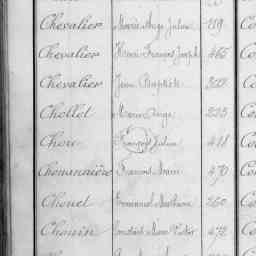 Chevalier Marie Ange Julien 119 Co
Chevalier Henri François Joseph 465 Co
Chevalier Jean Baptiste 303 Co
Chollet Marie Ange 225 Co
Chou François Julien 418 Co
Chemannière François Marie 470 Co
Chouet Emmanuel Mathurin 260 Co
Chouin Marie Victor 472 Co